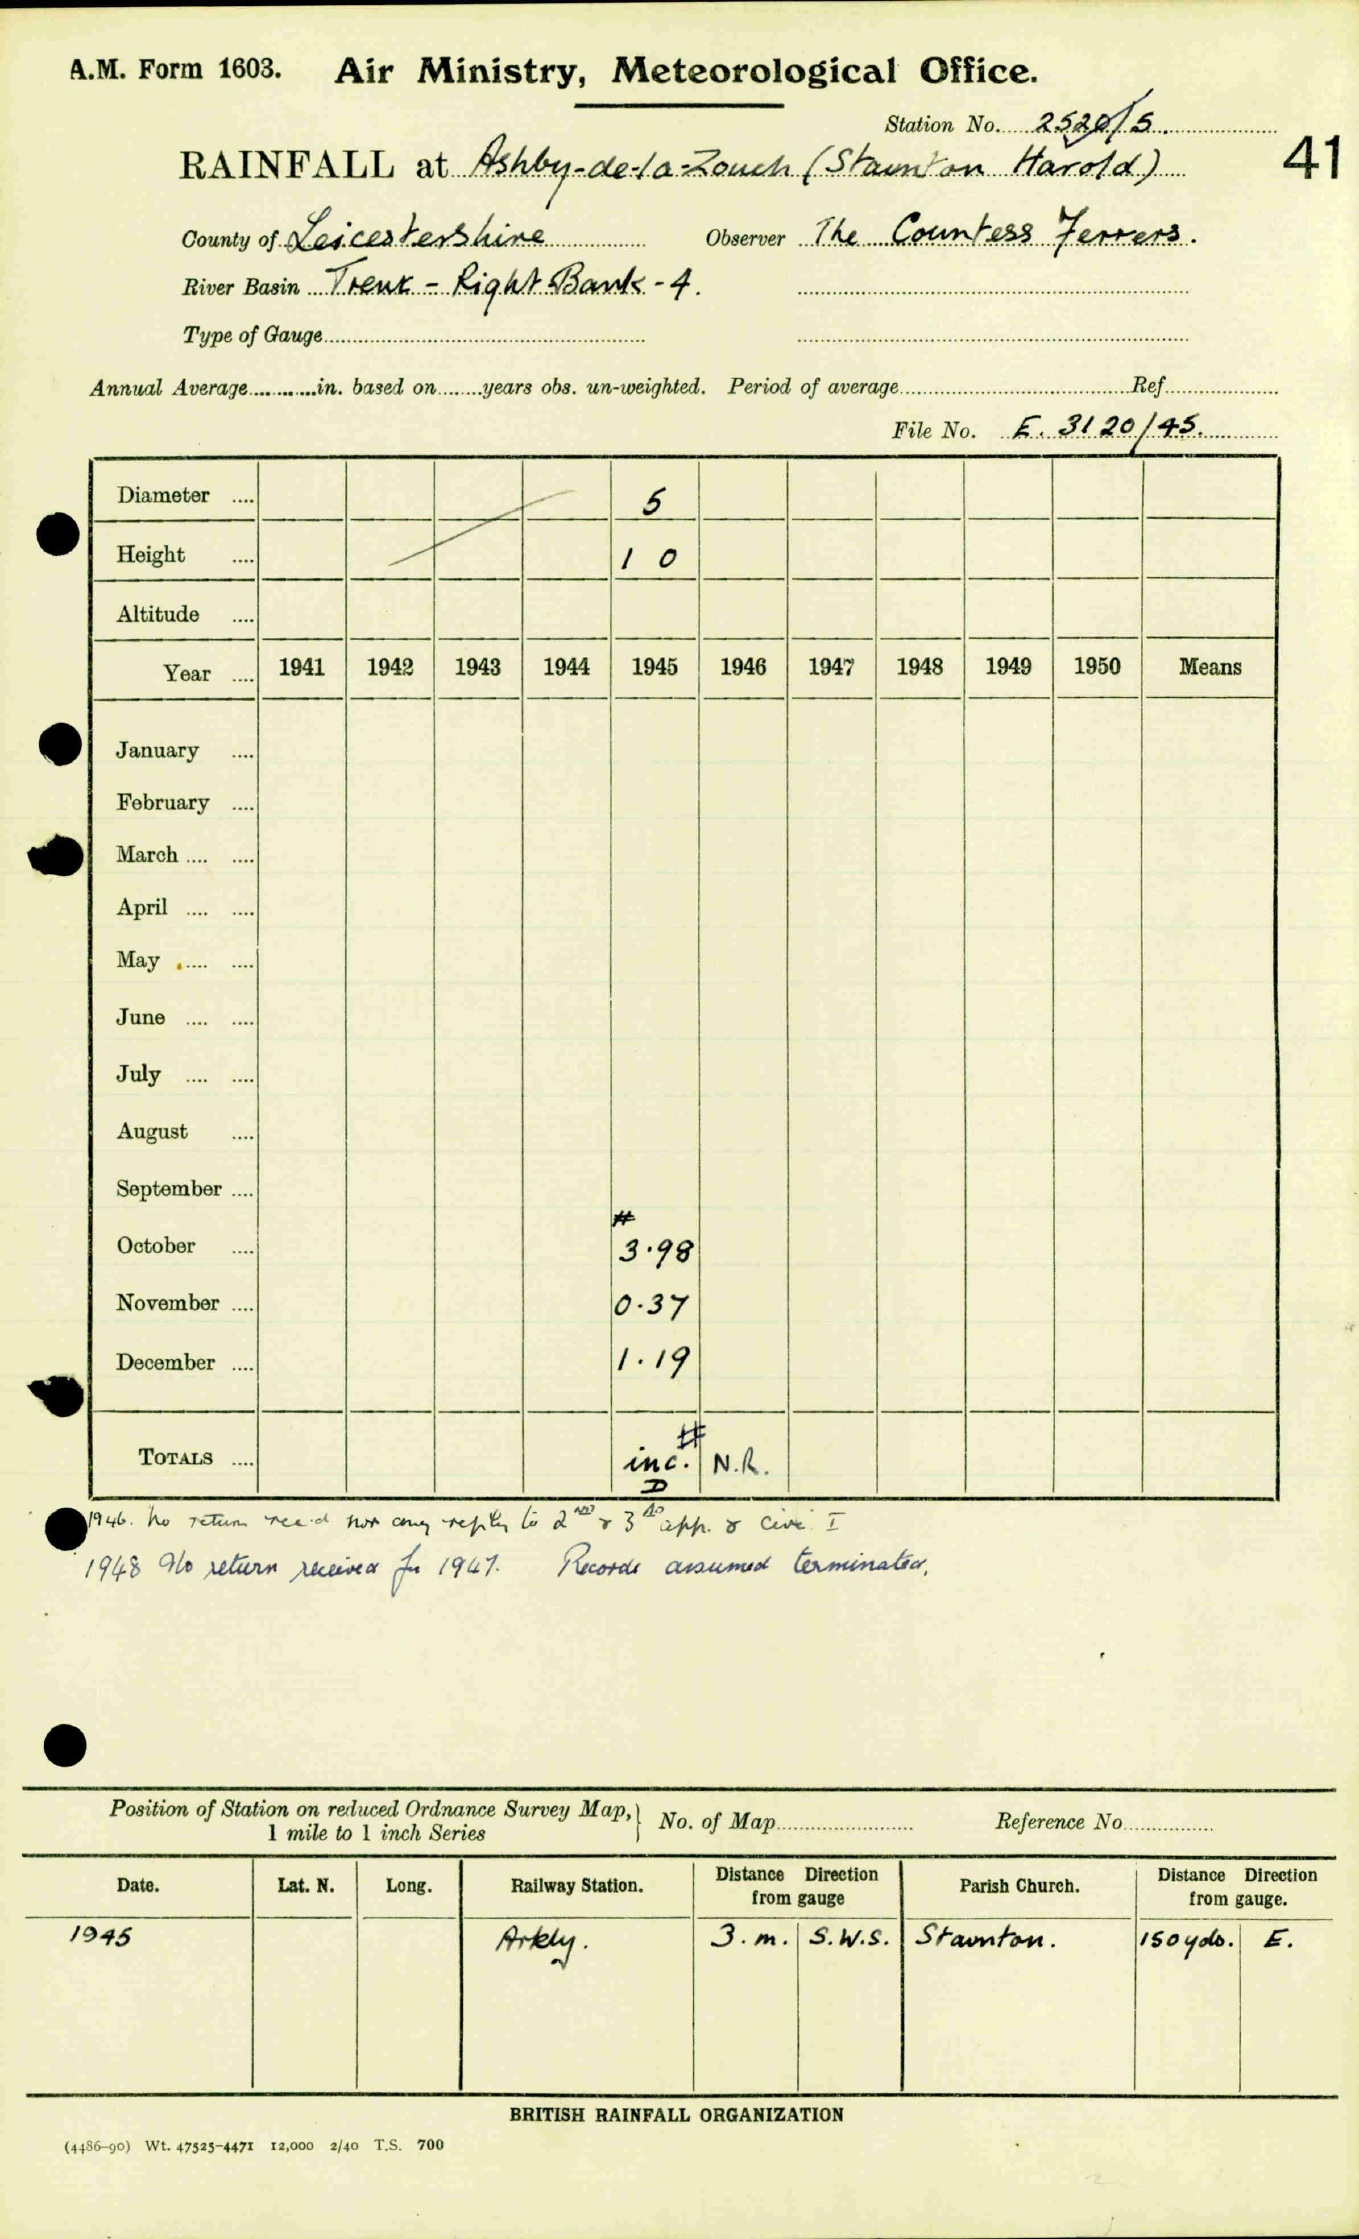 A.M. Form 1603. Air Ministry, Meteorological Office.
Station No. 2520/5.
41
RAINFALL at Ashby-de-la-Zouch (Staunton Harold)
County of Leicestershire Observer The Countess Ferrers.
River Basin Trent - Right Bank - 4.
Type of Gauge
Annual Average in. based on years obs. un-weighted. Period of average Ref
File No. E. 3120/45.
Diameter .... 5
Height .... 1 0
Altitude ....
Year .... 1941 1942 1943 1944 1945 1946 1947 1948 1949 1950 Means
January ....
February ....
March .... ....
April .... ....
May .... ....
June .... ....
July .... ....
August ....
September ....
#
October .... 3.98
November .... 0.37
December .... 1.19
#
TOTALS .... inc. N.R.
D
1946. No return rec'd nor any reply to 2nd & 3rd app. &
1948 No return received for 1947. Records assumed terminated.
Position of Station on reduced Ordnance Survey Map, 1 mile to 1 inch Series } No. of Map Reference No
Date. Lat. N. Long. Railway Station. Distance Direction from gauge Parish Church. Distance Direction from gauge.
1945 3. m. S.W.S. Staunton. 150 yds. E.
BRITISH RAINFALL ORGANIZATION
(4486–90) Wt. 47525–4471 12,000 2/40 T.S. 700